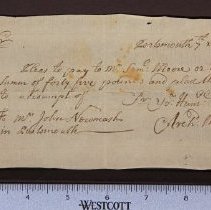 Portsmouth
Pleas to pay to Mr. Saml. Moore or
summ of forty five pounds and place th
to accompt of Sr. Yr. Hum
Mr. John Newmarch
in Portsmouth Archd.
WESTCOTT
3 4 5 6 7 8